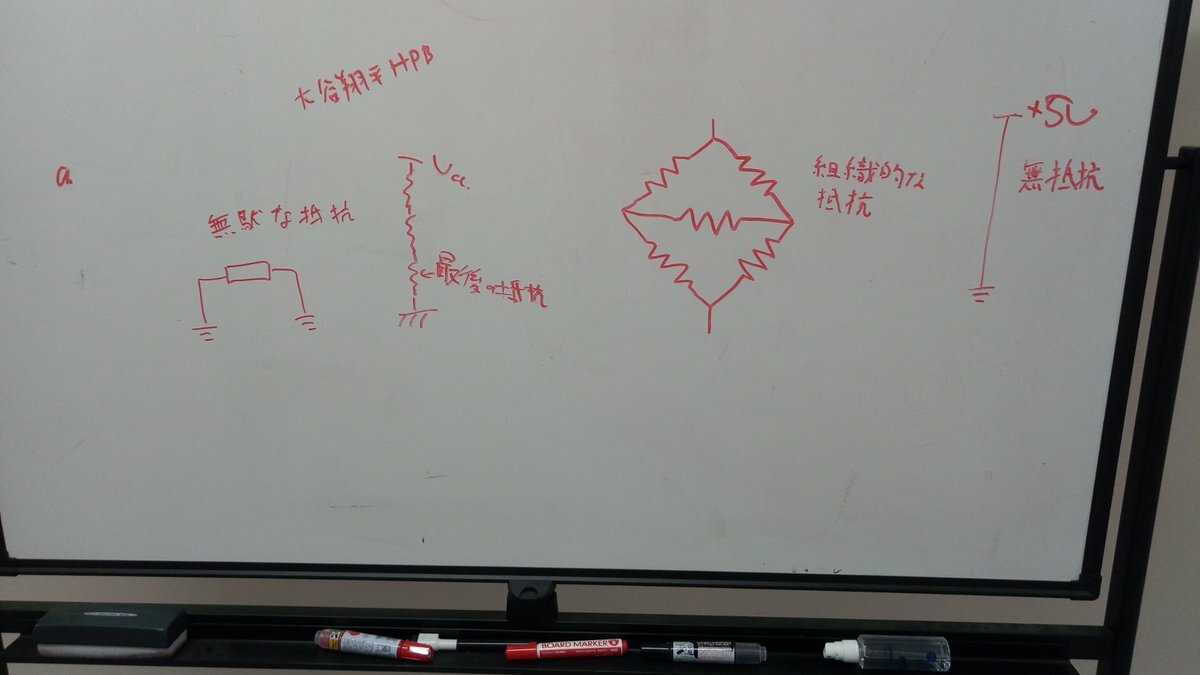 大谷翔平HPB
a
無駄な抵抗
Vcc
←最後の抵抗
組織的な
抵抗
+5V
無抵抗
BOARD MARKER